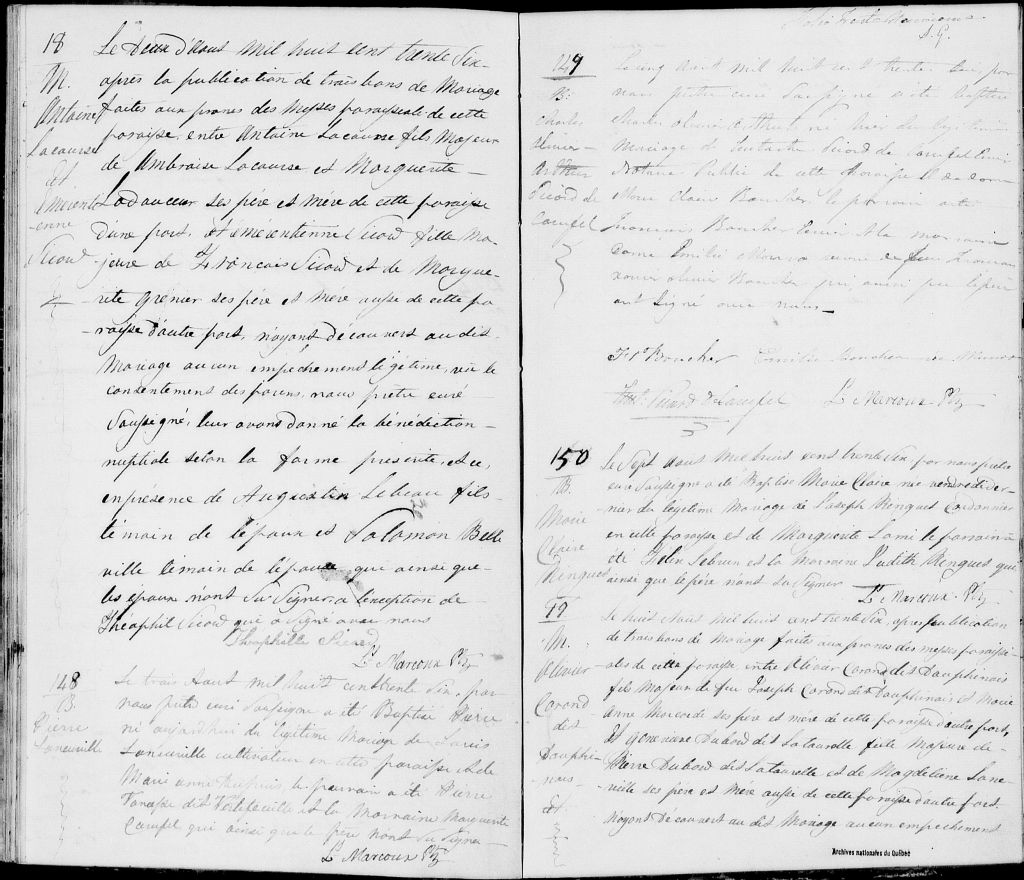 18
M.
Antoine
Lacourse
et
Emérentienne
Sicard
Le Deux d'Aout mil huit cent trente Six
après la publication de trois bans de Mariage
faites aux prones des messes paroissiale de cette
paroisse, entre Antoine Lacourse fils Majeur
de Ambroise Lacourse et Marguerite
Ladouceur ses père et mère de cette paroisse
d'une part, et Emérentienne Sicard fille Ma-
jeure de François Sicard et de Margue-
rite Grenier ses père et mère aussi de cette pa
-roisse d'autre part, n'ayant découvert au dit
Mariage aucun empêchement légitime, vu le
consentement des parens, nous prêtre curé
Soussigné, leur avons donné la bénédiction
nuptiale selon la forme préscrite, et ce,
en présence de Augustin Lebeau fils
témoin de l'époux et Salomon Belle
ville témoin de l'épouse que ainsi que
les epoux n'ont Su Signer, a l'exception de
Théophil Sicard qui a Signé avec nous
Théophille Sicard
Ls Marcoux Ptr
148
B.
Pierre
Laneuville
Le trois Aout mil huit cent trente Six, par
nous prêtre curé Soussigné a été Baptisé Pierre
né aujourd'hui du légitime Mariage de Louis
Laneuville cultivateur en cette paroisse et de
Marie anne Dupuis, le parrain a été Pierre
dit et la Marraine Marguerite
Caufel qui ainsi que le père n'ont Su Signer
Ls Marcoux Ptr
149
B.
Charles
Olivier
Arthur
Sicard de
Caufel
Le cinq Aout mil huit cent trente Six par
nous prêtre curé Soussigné a été Baptisé
Charles Olivier Arthur né hier du légitime
Mariage de Sicard de Caufel Ecuier
Notaire Public de cette Paroisse et de Dame
Marie Claire Boucher, le parrain a été
François Boucher Ecuier et la marraine
Dame Emilie Munro veuve de feu
Olivier Boucher qui ainsi que le père
ont Signé avec nous
Frs Boucher
Sicard de Caufel Ls Marcoux Ptr
150
B.
Marie
Claire
Ringuet
Le Sept Aout mil huit cent trente Six, par nous prêtre
curé Soussigné a été Baptisé Marie Claire née vendredi der-
nier du légitime Mariage de Joseph Ringuet Cordonnier
en cette paroisse et de Marguerite Lami le parrain a
été Helen Lebrun et la Marraine Judith Ringuet qui
ainsi que le père n'ont Su Signer
Ls Marcoux Ptr
19
M.
Olivier
Carond
dit
Dauphi-
nais
et
Le huit Aout mil huit cent trente Six, après publication
de trois bans de Mariage faite aux prones des messes paroissi-
ales de cette paroisse, entre Olivier Carond dit Dauphinais
fils Majeur de feu Joseph Carond dit Dauphinais et Marie
Anne Marcorde ses père et mère de cette paroisse d'autre part,
et Geneviève Dubord dit Latourelle fille Majeure de
Pierre Dubord dit Latourelle et de Magdeleine Lane-
uville ses père et mère aussi de cette paroisse d'autre part
N'ayant découvert au dit Mariage aucun empechement
Archives nationales du Québec